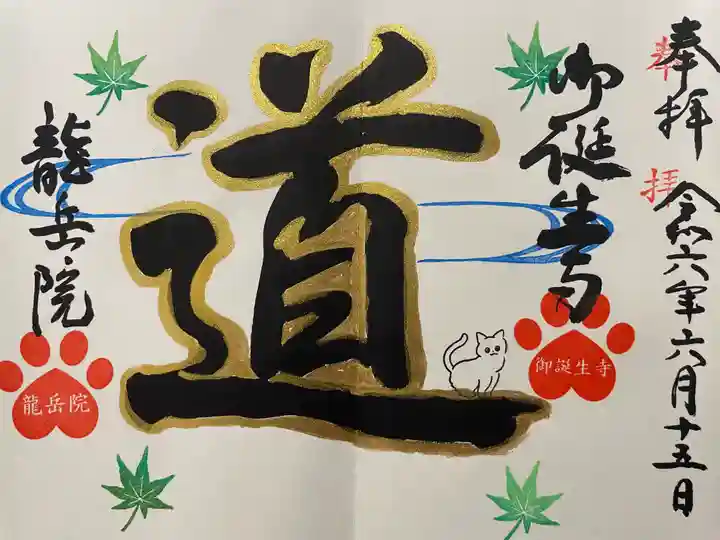 奉拝
奉拝
令和六年六月十五日
御誕生寺
御誕生寺
道
龍岳院
龍岳院